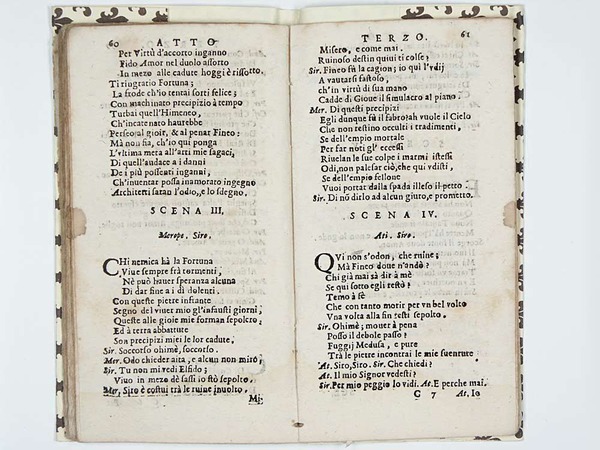 60 ATTO
Per Virtù d'accorto inganno
Fido Amor nel duolo assorto
In mezo alle cadute hoggi è risorto.
Ti ringratio Fortuna;
La frode ch'io tentai sortì felice;
Con machinato precipizio à tempo
Turbai quell'Himeneo,
Ch'incatenato haurebbe
Perseo al gioir, & al penar Fineo:
Mà non fia, ch'io qui ponga
L'vltima meta all'arti mie sagaci,
Di quell'audace a i danni
De i più possenti inganni,
Ch'inuentar possa inamorato ingegno
Architetti saran l'odio, e lo sdegno.
SCENA III.
Merope. Siro.
CHi nemica hà la Fortuna
Viue sempre frà tormenti,
Nè può hauer speranza alcuna
Di dar fine a i dì dolenti.
Con queste pietre infrante
Segno del viuer mio gl'infausti giorni,
Queste alle gioie mie forman sepolcro,
Ed à terra abbattute
Son precipizi miei le lor cadute.
Sir. Soccorso ohimè, soccorso.
Mer. Odo chieder aita, e alcun non miro;
Sir. Tu non mi vedi Elfido;
Viuo in mezo dè sassi io stò sepolto.
Mer. Siro è costui trà le ruine inuolto,
Mi-
TERZO. 61
Misero, e come mai
Ruinoso destin quiui ti colse?
Sir. Fineo fù la cagion; io qui l'vdij
A vantarsi fastoso,
ch'in virtù di sua mano
Cadde di Gioue il simulacro al piano.
Mer. Di questi precipizi
Egli dunque fù il fabro? ah vuole il Cielo
Che non restino occulti i tradimenti,
Se dell'empio mortale
Per far noti gl'eccessi
Riuelan le sue colpe i marmi istessi
Odi, non palesar ciò, che qui vdisti,
Se dell'empio fellone
Vuoi portar dalla spada illeso il petto.
Sir. Di nō dirlo ad alcun giuro, e prometto.
SCENA IV.
Ati. Siro.
QVi non s'odon, che ruine;
Mà Fineo doue n'andò?
Chi già mai sà dir à mè
Se qui sotto egli restò?
Temo à fè
Che con tanto morir per vn bel volto
Vna volta alla fin resti sepolto.
Sir. Ohimè; mouer à pena
Posso il debole passo?
Fuggij Medusa, e pure
Trà le pietre incontrai le mie suenture
At. Siro, Siro. Sir. Che chiedi?
At. Il mio Signor vedesti?
Sir. Per mio peggio lo vidi. At. E perche mai.
C 7 At. Io